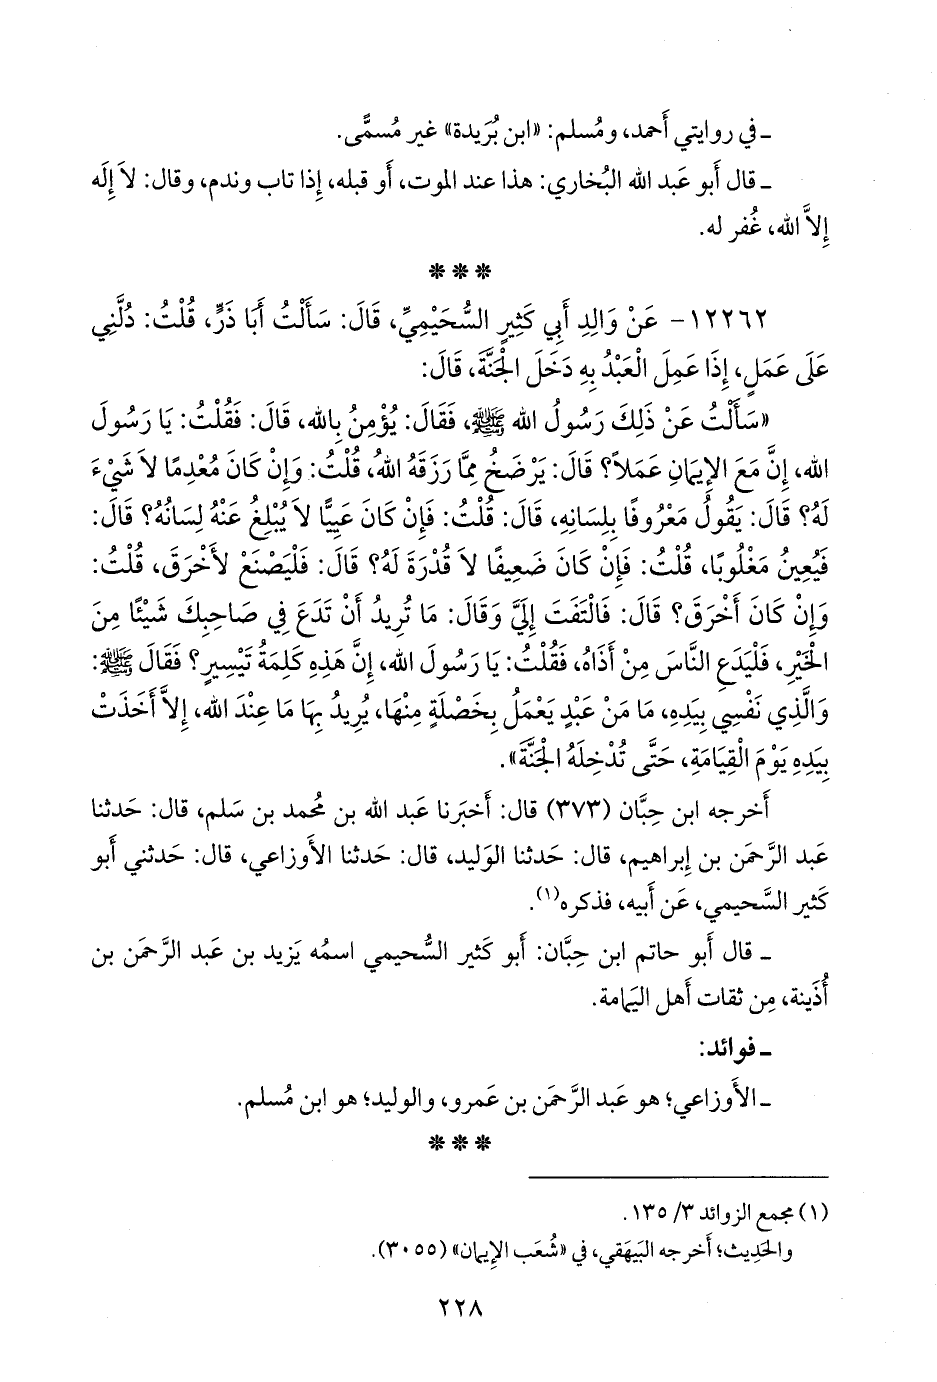 ـ في روايتي أَحمد، ومُسلم: «ابن بُرَيدة» غير مُسمًّى.
ـ قال أَبو عَبد الله البُخاري: هذا عند الموت، أَو قبله، إِذا تاب وندم، وقال: لاَ إِلَه
إِلاَّ الله، غُفر له.
* * *
١٢٢٦٢- عَنْ وَالِدِ أَبِي كَثِيرٍ السُّحَيْمِيِّ، قَالَ: سَأَلْتُ أَبَا ذَرٍّ، قُلْتُ: دُلَّنِي
عَلَى عَمَلٍ، إِذَا عَمِلَ الْعَبْدُ بِهِ دَخَلَ الْجَنَّةَ، قَالَ:
«سَأَلْتُ عَنْ ذَلِكَ رَسُولَ الله ﷺ، فَقَالَ: يُؤْمِنُ بِالله، قَالَ: فَقُلْتُ: يَا رَسُولَ
الله، إِنَّ مَعَ الإِيمَانِ عَمَلاً؟ قَالَ: يَرْضَخُ مِمَّا رَزَقَهُ اللهُ، قُلْتُ: وَإِنْ كَانَ مُعْدِمًا لاَ شَيْءَ
لَهُ؟ قَالَ: يَقُولُ مَعْرُوفًا بِلِسَانِهِ، قَالَ: قُلْتُ: فَإِنْ كَانَ عَيِيًّا لاَ يُبْلِغُ عَنْهُ لِسَانُهُ؟ قَالَ:
فَيُعِينُ مَغْلُوبًا، قُلْتُ: فَإِنْ كَانَ ضَعِيفًا لاَ قُدْرَةَ لَهُ؟ قَالَ: فَلْيَصْنَعْ لأَخْرَقَ، قُلْتُ:
وَإِنْ كَانَ أَخْرَقَ؟ قَالَ: فَالْتَفَتَ إِلَيَّ وَقَالَ: مَا تُرِيدُ أَنْ تَدَعَ فِي صَاحِبِكَ شَيْئًا مِنَ
الْخَيْرِ، فَلْيَدَعِ النَّاسَ مِنْ أَذَاهُ، فَقُلْتُ: يَا رَسُولَ الله، إِنَّ هَذِهِ كَلِمَةُ تَيْسِيرٍ؟ فَقَالَ ﷺ:
وَالَّذِي نَفْسِي بِيَدِهِ، مَا مَنْ عَبْدٍ يَعْمَلُ بِخَصْلَةٍ مِنْهَا، يُرِيدُ بِهَا مَا عِنْدَ الله، إِلاَّ أَخَذَتْ
بِيَدِهِ يَوْمَ الْقِيَامَةِ، حَتَّى تُدْخِلَهُ الْجَنَّةَ».
أَخرجه ابن حِبَّان (٣٧٣) قال: أَخبَرنا عَبد الله بن مُحمد بن سَلم، قال: حَدثنا
عَبد الرَّحمَن بن إِبراهيم، قال: حَدثنا الوَليد، قال: حَدثنا الأَوزاعي، قال: حَدثني أَبو
كَثير السَّحيمي، عَن أَبيه، فذكره(١).
ـ قال أَبو حاتم ابن حِبَّان: أَبو كَثير السُّحيمي اسمُه يَزيد بن عَبد الرَّحمَن بن
أُذَينة، مِن ثقات أَهل اليَمامة.
ـ فوائد:
ـ الأَوزاعي؛ هو عَبد الرَّحمَن بن عَمرو، والوليد؛ هو ابن مُسلم.
* * *
(١) مجمع الزوائد ٣/ ١٣٥.
والحَدِيث؛ أَخرجه البَيهَقي، في «شُعَب الإِيمان» (٣٠٥٥).
٢٢٨